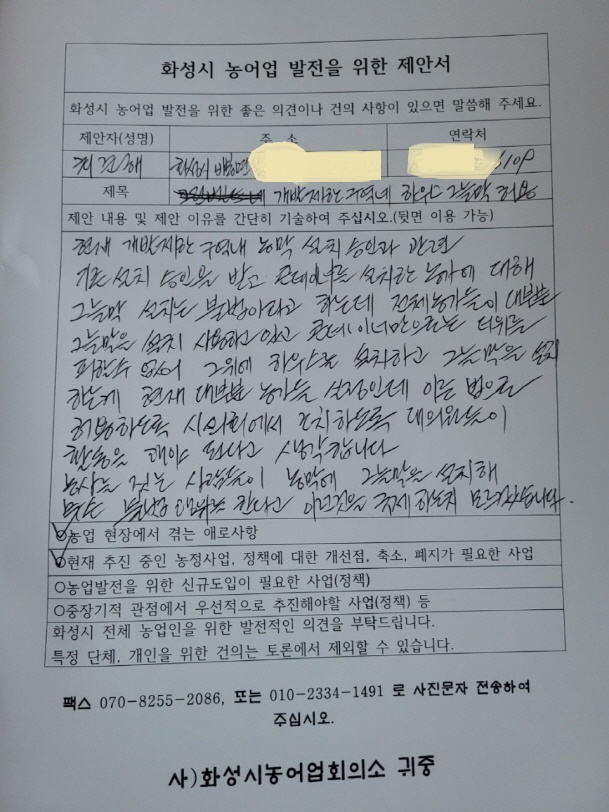 화성시 농어업 발전을 위한 제안서
화성시 농어업 발전을 위한 좋은 의견이나 건의 사항이 있으면 말씀해 주세요.
제안자(성명) 주 소 연락처
화성시 비봉면
제목 개발제한 구역내 하우스 그늘막 허용
제안 내용 및 제안 이유를 간단히 기술하여 주십시오.(뒷면 이용 가능)
현재 개발제한 구역내 농막 설치 승인과 관련
기존 설치 승인을 받고 콘테이너를 설치한 농가에 대해
그늘막 설치는 불법이라고 하는데 전체농가들이 대부분
그늘막을 설치 사용하고 있고 콘테이너만으로는 더위를
피할수 없어 그위에 하우스를 설치하고 그늘막을 설치
하는게 현재 대부분 농가들 실정인데 이를 법으로
허용하도록 시의회에서 조치하도록 대의원들이
활동을 해야 된다고 생각합니다
농사를 짓는 사람들이 농막에 그늘막을 설치해
불법 행위를 한다고 이런것을 규제 하는지 모르겠습니다.
○농업 현장에서 겪는 애로사항
○현재 추진 중인 농정사업, 정책에 대한 개선점, 축소, 폐지가 필요한 사업
○농업발전을 위한 신규도입이 필요한 사업(정책)
○중장기적 관점에서 우선적으로 추진해야할 사업(정책) 등
화성시 전체 농업인을 위한 발전적인 의견을 부탁드립니다.
특정 단체, 개인을 위한 건의는 토론에서 제외할 수 있습니다.
팩스 070-8255-2086, 또는 010-2334-1491 로 사진문자 전송하여
주십시오.
사)화성시농어업회의소 귀중